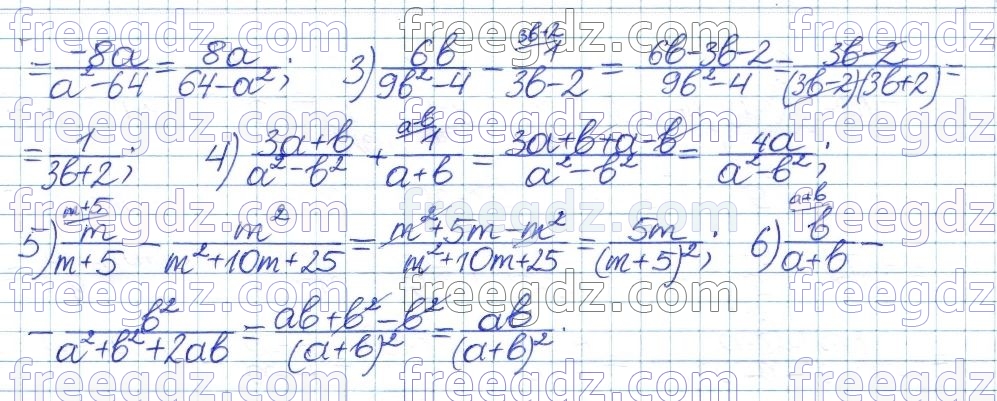 = -8a/(a²-64) = 8a/(64-a²); 3) 6b/(9b²-4) - 1/(3b-2) (3b+2) = (6b-3b-2)/(9b²-4) = (3b-2)/((3b-2)(3b+2)) =
= 1/(3b+2); 4) (3a+b)/(a²-b²) + 1/(a+b) (a-b) = (3a+b+a-b)/(a²-b²) = 4a/(a²-b²);
5) m/(m+5) (m+5) - m²/(m²+10m+25) = (m²+5m-m²)/(m²+10m+25) = 5m/(m+5)²; 6) b/(a+b) (a+b) -
- b²/(a²+b²+2ab) = (ab+b²-b²)/(a+b)² = ab/(a+b)².
freegdz.com